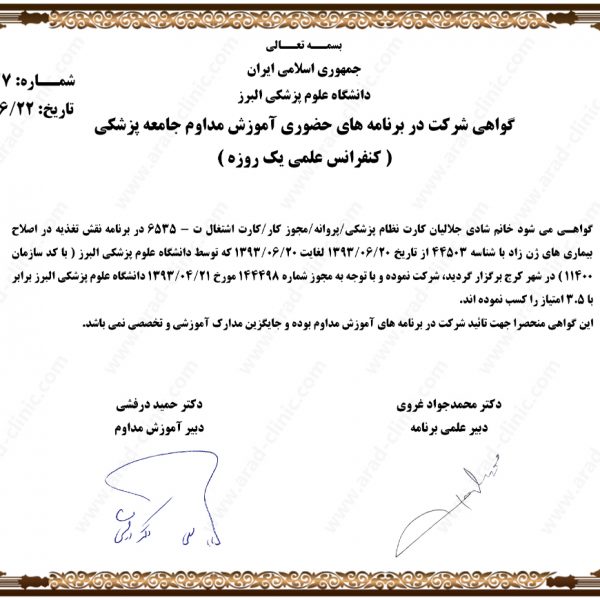 بسمه تعالی
جمهوری اسلامی ایران
دانشگاه علوم پزشکی البرز
شماره: ۷
تاریخ: ۶/۲۲
گواهی شرکت در برنامه های حضوری آموزش مداوم جامعه پزشکی
( کنفرانس علمی یک روزه )
گواهی می شود خانم شادی جلالیان کارت نظام پزشکی/پروانه/مجوز کار/کارت اشتغال ت - ۶۵۳۵ در برنامه نقش تغذیه در اصلاح
بیماری های ژن زاد با شناسه ۴۴۵۰۳ از تاریخ ۱۳۹۳/۰۶/۲۰ لغایت ۱۳۹۳/۰۶/۲۰ که توسط دانشگاه علوم پزشکی البرز ( با کد سازمان
۱۱۴۰۰ ) در شهر کرج برگزار گردید، شرکت نموده و با توجه به مجوز شماره ۱۴۴۴۹۸ مورخ ۱۳۹۳/۰۴/۲۱ دانشگاه علوم پزشکی البرز برابر
با ۳.۵ امتیاز را کسب نموده اند.
این گواهی منحصرا جهت تائید شرکت در برنامه های آموزش مداوم بوده و جایگزین مدارک آموزشی و تخصصی نمی باشد.
دکتر محمدجواد غروی
دبیر علمی برنامه
دکتر حمید درفشی
دبیر آموزش مداوم
www.arad-clinic.com